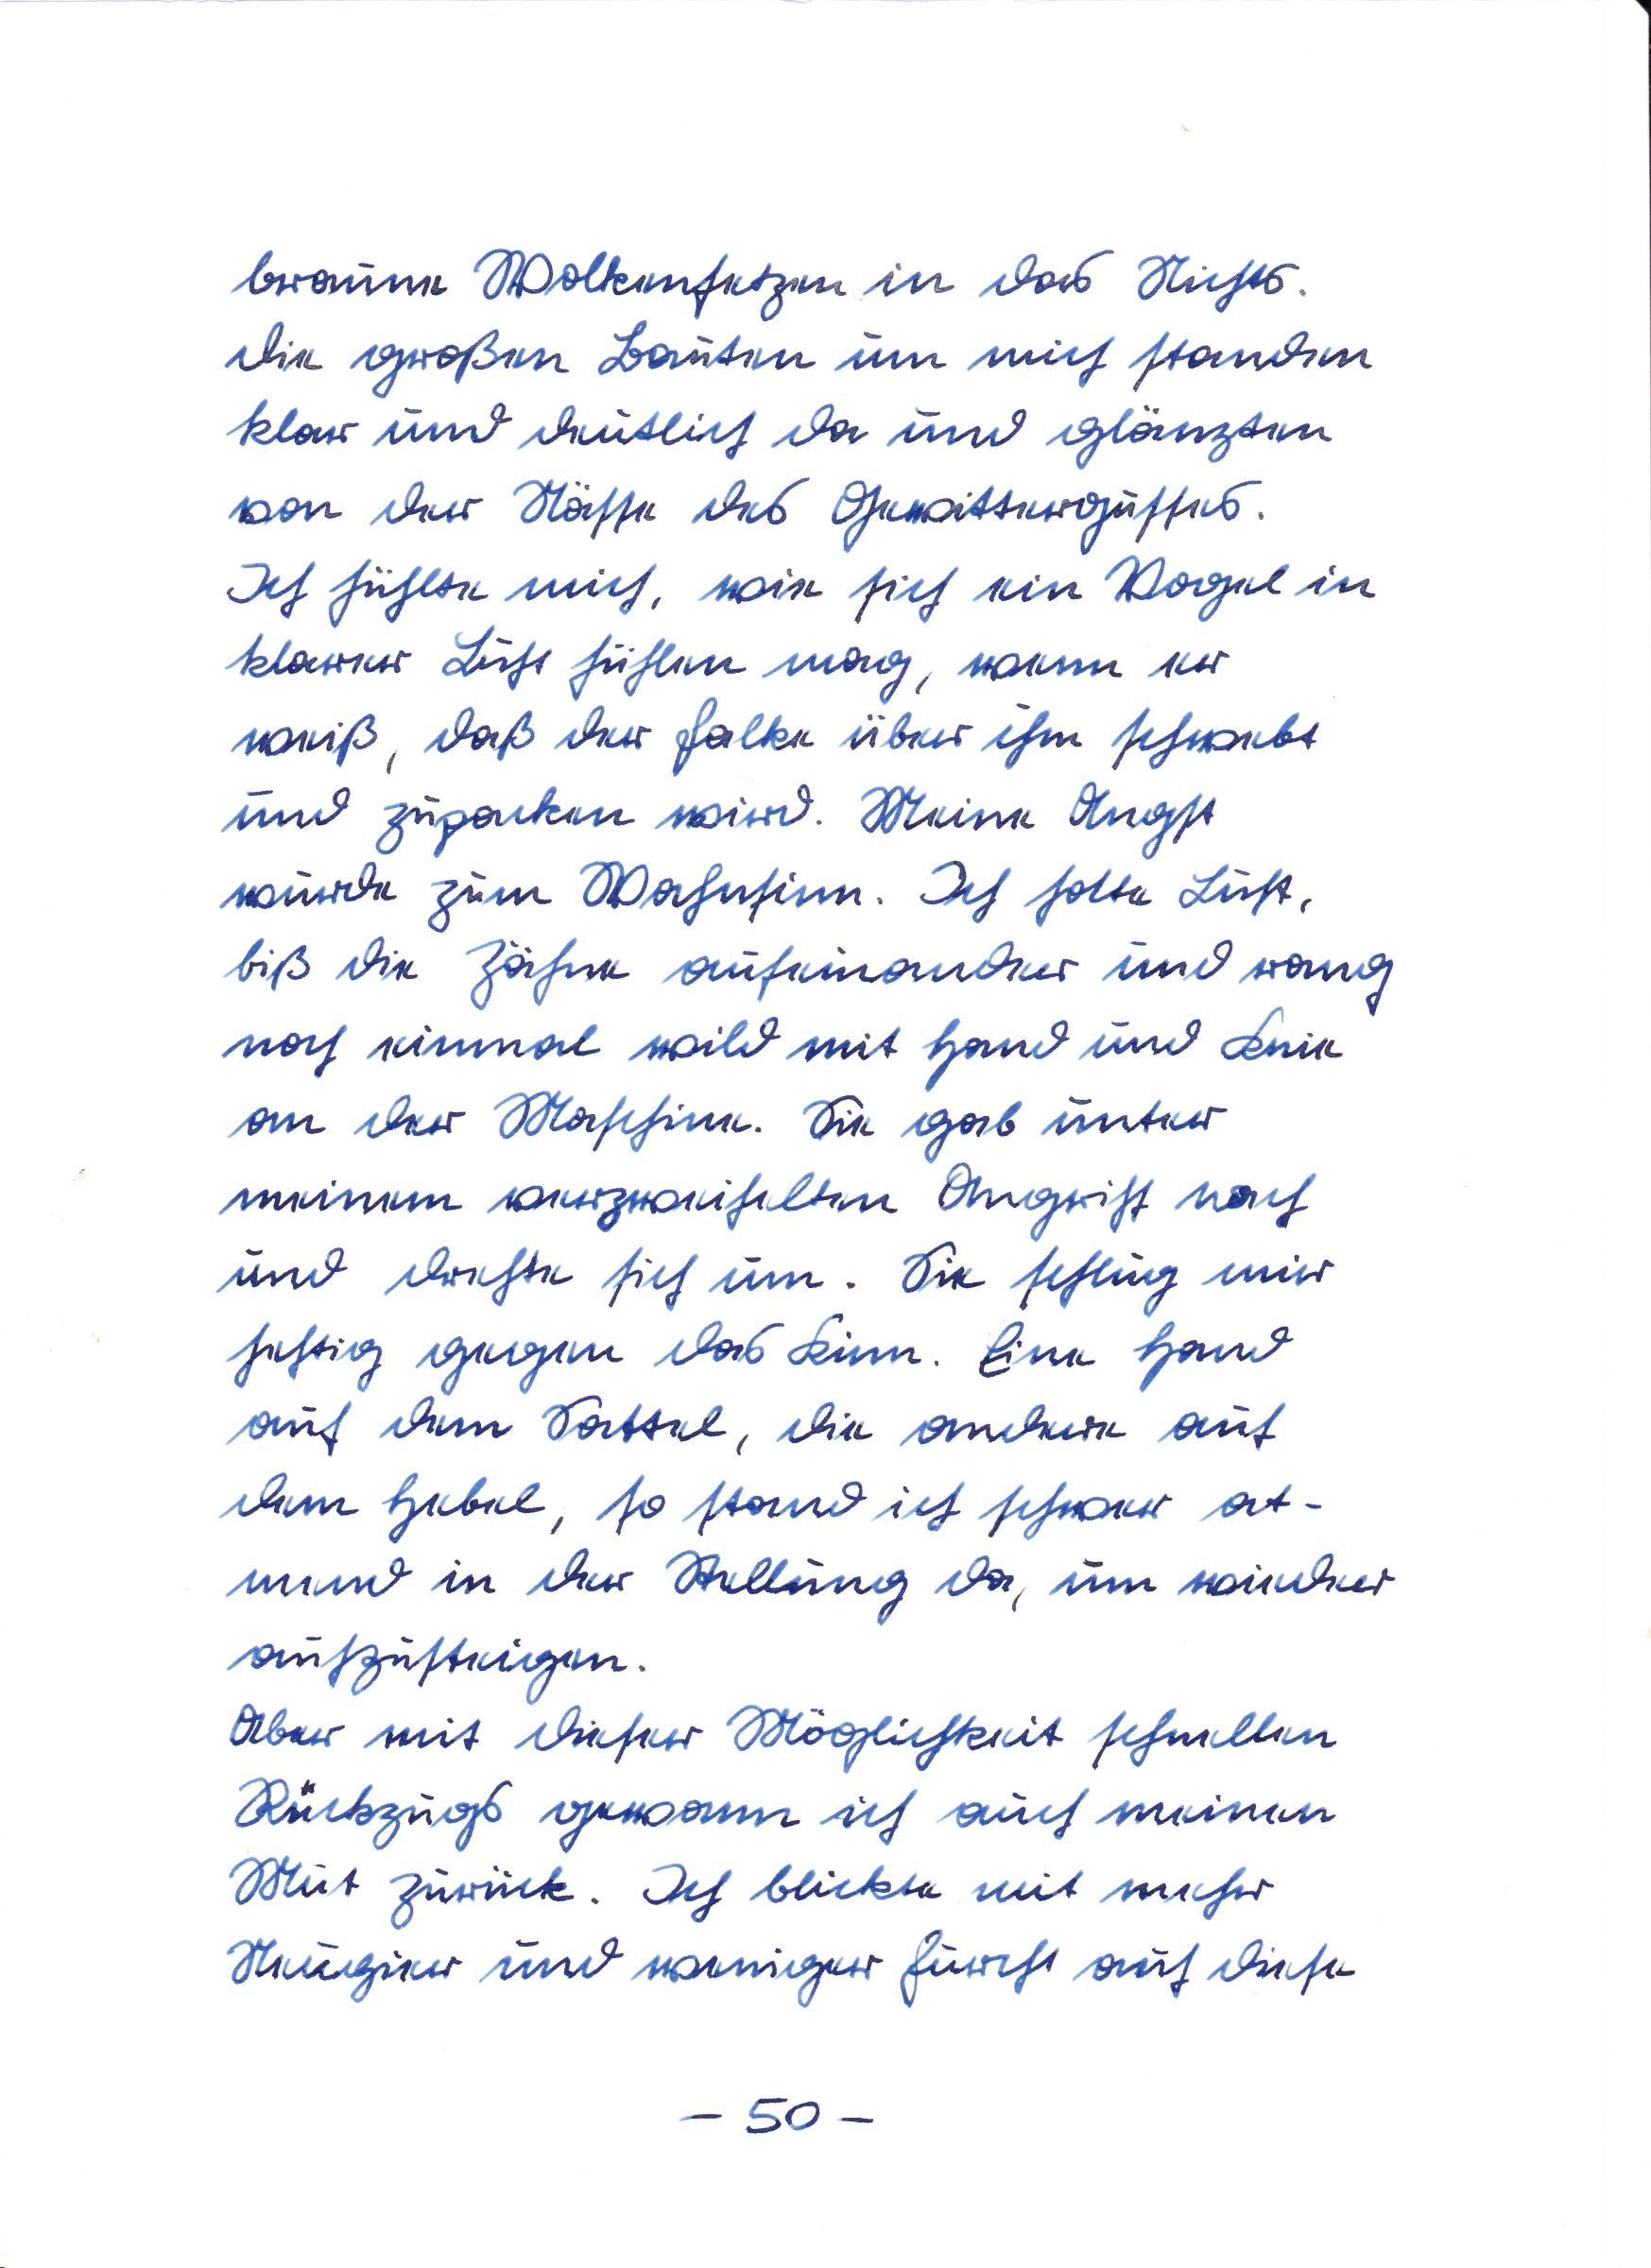 braune Wolkenfetzen in das Nichts.
Die großen Bauten um mich standen
klar und deutlich da und glänzten
von der Nässe des Gewittergusses.
Ich fühlte mich, wie sich ein Vogel in
klarer Luft fühlen mag, wenn er
weiß, daß der Falke über ihm schwebt
und zupacken wird. Meine Angst
wurde zum Wahnsinn. Ich holte Luft,
biß die Zähne aufeinander und rang
noch einmal wild mit Hand und Knie
an der Maschine. Sie gab unter
meinem verzweifelten Angriff nach
und drehte sich um. Sie schlug mir
heftig gegen das Kinn. Eine Hand
auf dem Sattel, die andere auf
dem Hebel, so stand ich schwer at-
mend in der Stellung da, um wieder
aufzusteigen.
Aber mit dieser Möglichkeit schnellen
Rückzugs gewann ich auch meinen
Mut zurück. Ich blickte mit mehr
Neugier und weniger Furcht auf diese
- 50 -